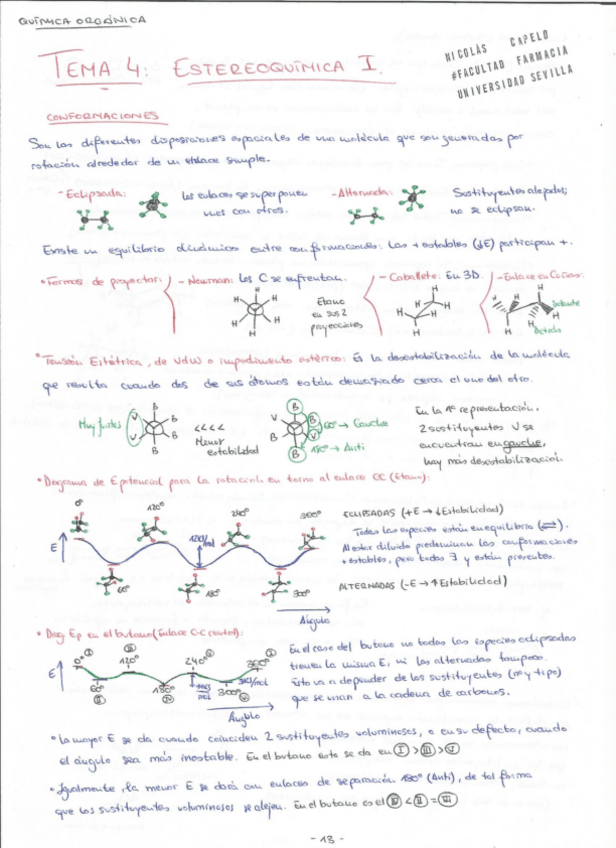 QUÍMICA ORGÁNICA
TEMA 4: ESTEREOQUÍMICA I.
NICOLÁS CAPELO
#FACULTAD FARMACIA
UNIVERSIDAD SEVILLA
CONFORMACIONES
Son las diferentes disposiciones espaciales de una molécula que son generadas por
rotación alrededor de un enlace simple.
- Eclipsada: los enlaces se superponen
unos con otros.
- Alternada: Sustituyentes alejados;
no se eclipsan.
Existe un equilibrio dinámico entre conformaciones: Las + estables (↓E) participan +.
• Formas de proyectar:
- Newman: Los C se enfrentan.
H H H H H H
Etano
en sus 2
proyecciones
- Caballete: En 3D.
H H H H H
- Enlace en Cuñas:
H H H H
Delante
Detrás
• Tensión Estérica, de VdW o impedimento estérico: Es la desestabilización de la molécula
que resulta cuando dos de sus átomos están demasiado cerca el uno del otro.
Muy juntos
V V B B B B
<<<<
Menor
estabilidad
B B V B
60° → Gauche
180° → Anti
En la 1ª representación,
2 sustituyentes V se
encuentran en gauche,
hay más desestabilización
• Diagrama de Epotencial para la rotación en torno al enlace CC (Etano):
E
0° 60° 120° 180° 240° 300° 360°
Ángulo
ECLIPSADAS (+E → ↓Estabilidad)
Todas las especies están en equilibrio (⇌).
Al estar diluido predominan las conformaciones
+ estables, pero todas ∃ y están presentes.
ALTERNADAS (-E → ↑Estabilidad)
• Diag Ep en el butano (Enlace C-C central):
E
0° I 60° II 120° III 180° IV 240° V 300° VI 360° I
Ángulo
En el caso del butano no todas las especies eclipsadas
tienen la misma E, ni las alternadas tampoco.
Esto va a depender de los sustituyentes (nº y tipo)
que se unan a la cadena de carbonos.
• La mayor E se da cuando coinciden 2 sustituyentes voluminosos, o en su defecto, cuando
el ángulo sea más inestable. En el butano esto se da en I > III > V
• Igualmente, la menor E se dará con enlaces de separación 180° (Anti), de tal forma
que los sustituyentes voluminosos se alejen. En el butano es el IV < II = VI
- 13 -